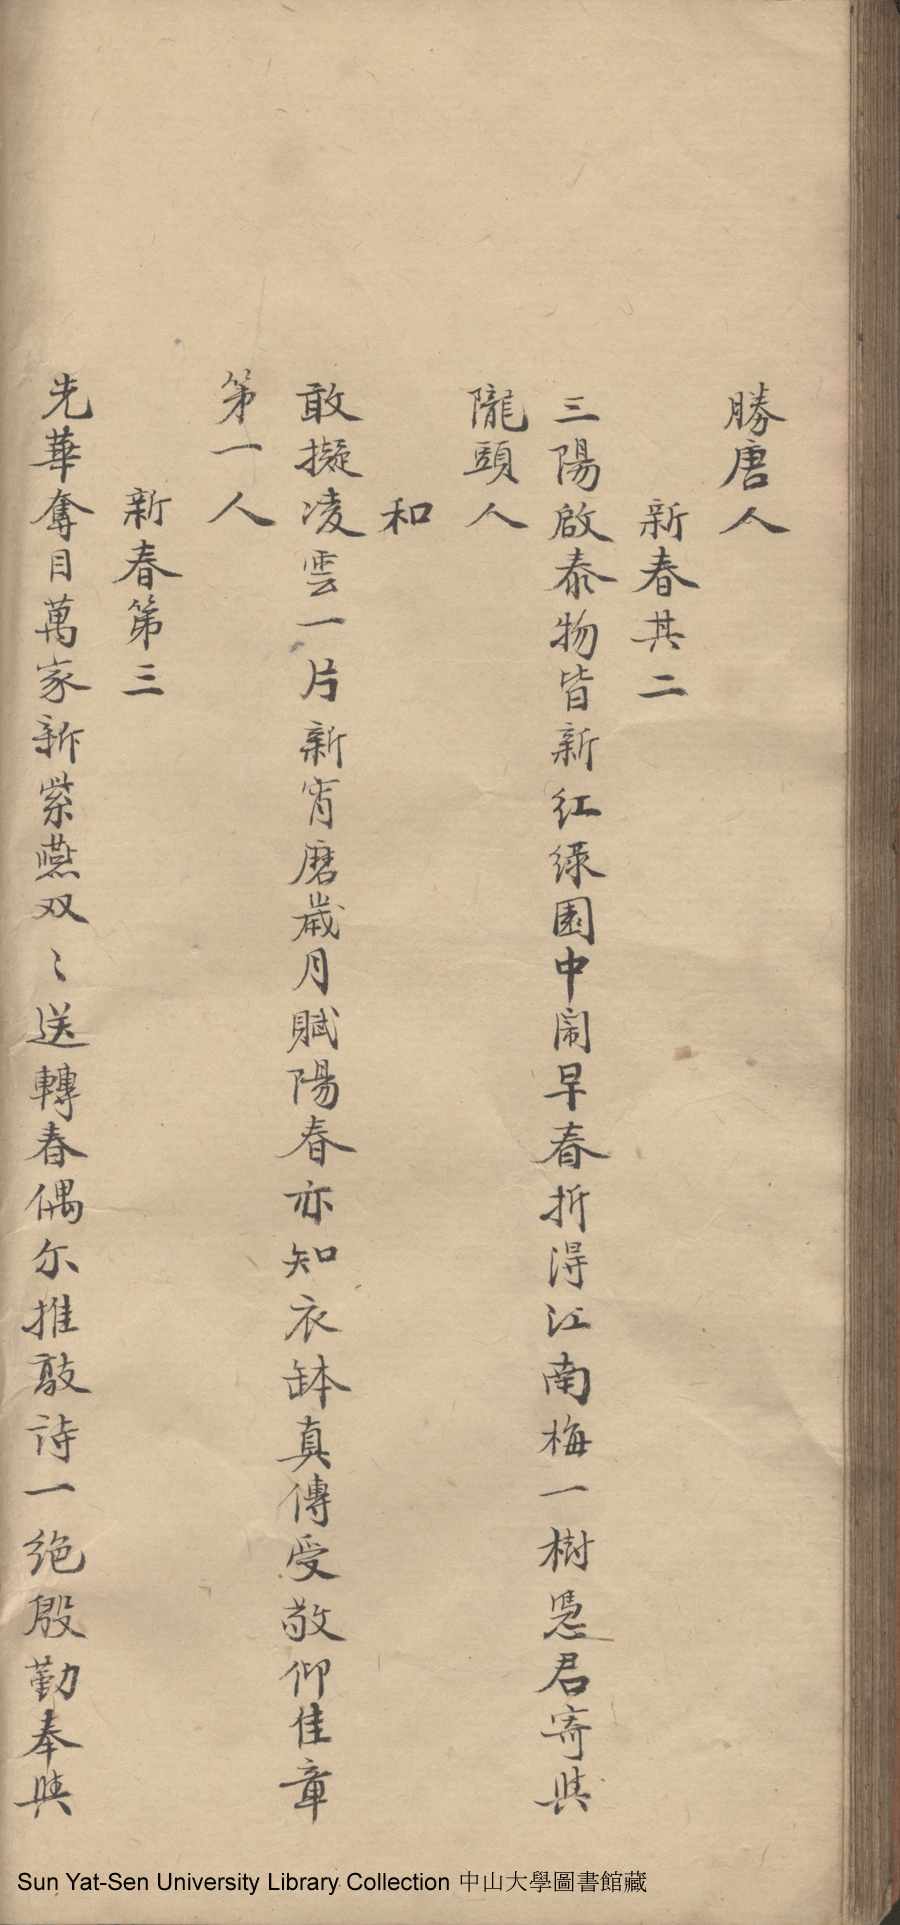 勝唐人
新春其二
三陽啟泰物皆新紅綠園中闹早春折得江南梅一樹憑君寄與
隴頭人
和
敢擬凌雲一片新宵磨歲月賦陽春亦知衣缽真傳受敬仰佳章
第一人
新春第三
光華奪目萬家新紫燕双〻送轉春偶尔推敲诗一絶殷勤奉與
Sun Yat-Sen University Library Collection 中山大學圖書館藏